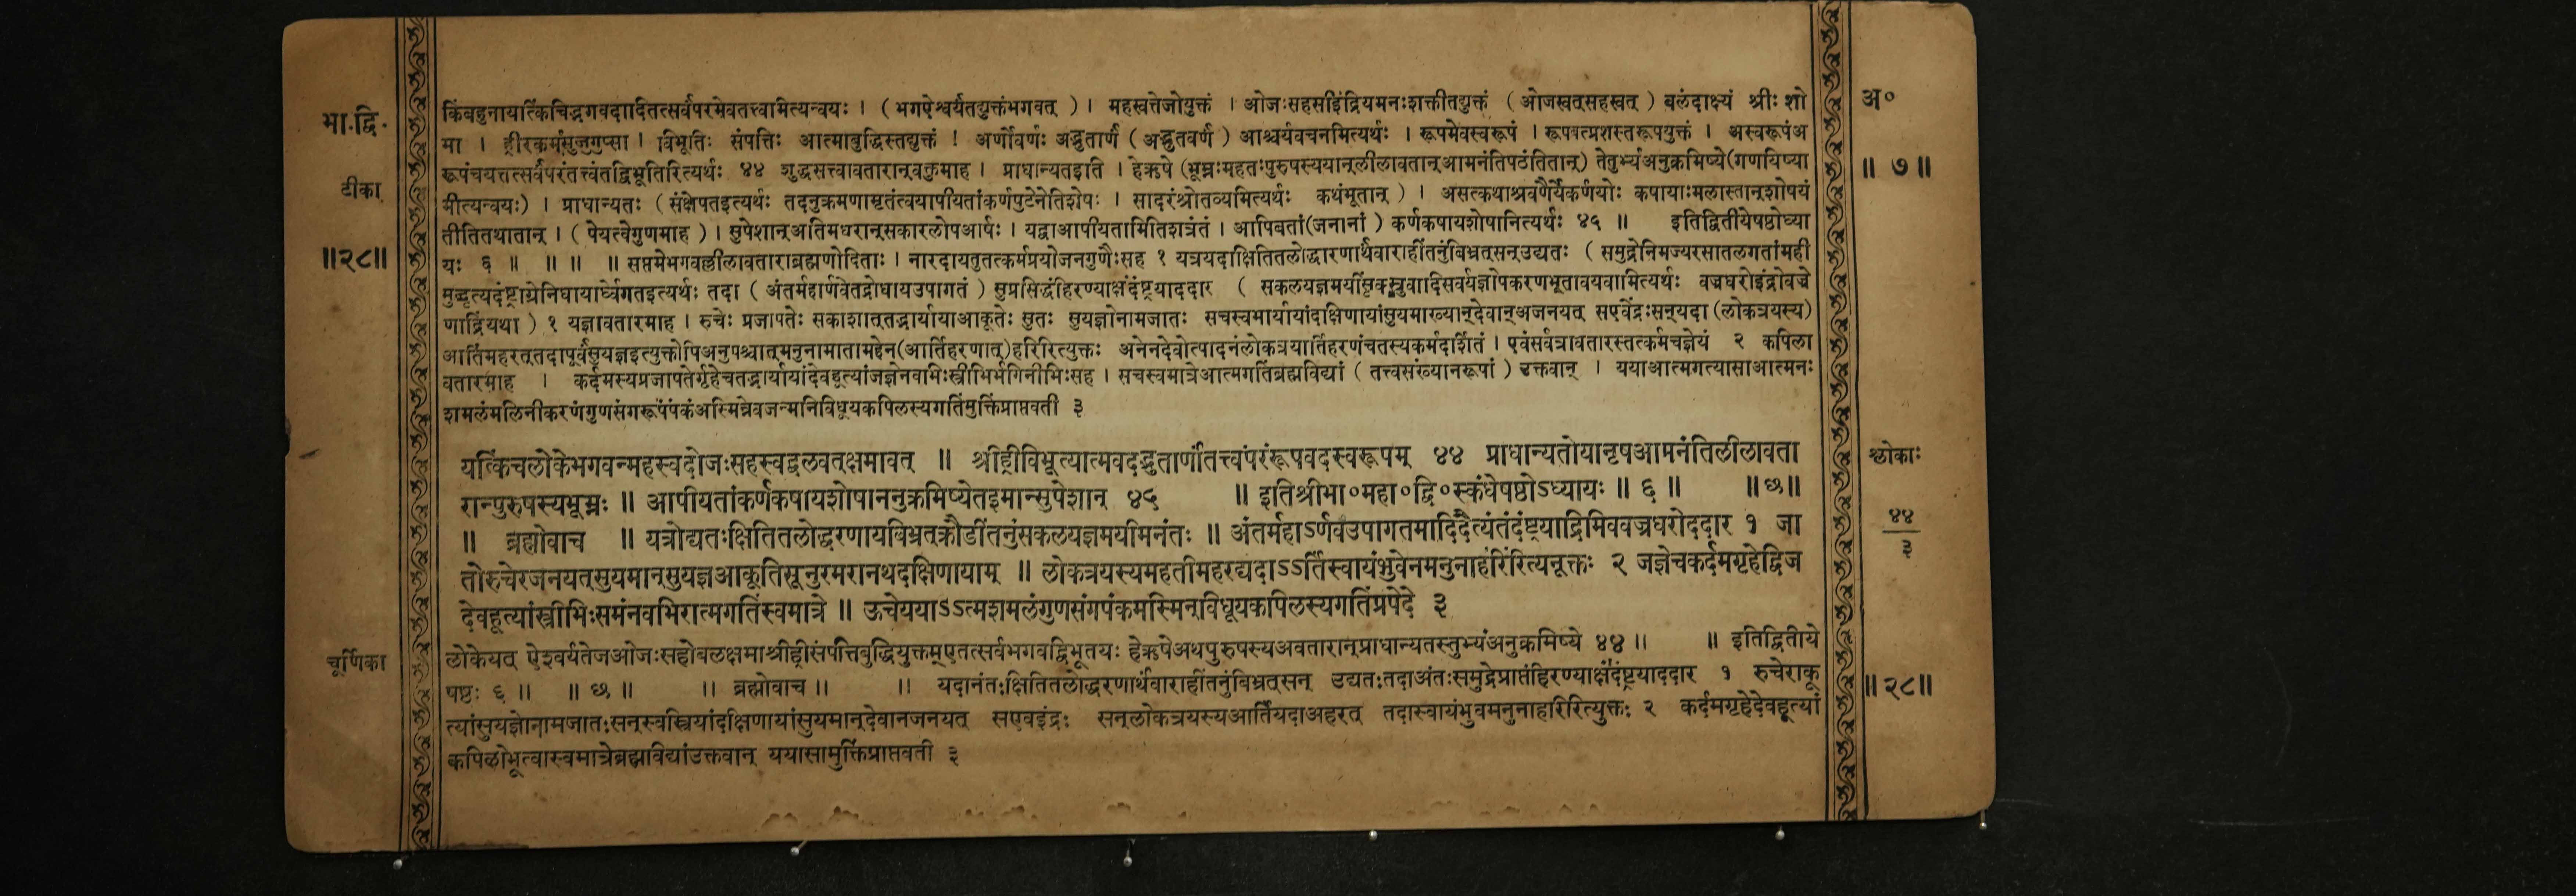 भा.द्वि.
टीका
॥२८॥
चूर्णिका
किंबहुनायत्किंचिद्भगवदादितत्सर्वंपरमेवतत्त्वामित्यन्वयः । ( भगऐश्वर्यंतद्युक्तंभगवत् ) । महस्वत्तेजोयुक्तं । ओजःसहसीइंद्रियमनःशक्तीतद्युक्तं ( ओजस्वत्सहस्वत् ) बलंदाक्ष्यं श्रीः शो
मा । ह्रीरकर्मसुजुगुप्सा । विभूतिः संपत्तिः आत्माबुद्धिस्तद्युक्तं ! अर्णोवर्णः अद्भुतार्णं ( अद्भुतवर्णं ) आश्चर्यवचनमित्यर्थः । रूपमेवस्वरूपं । रूपवत्प्रशस्तरूपयुक्तं । अस्वरूपंअ
रूपंचयत्तत्सर्वंपरंतत्त्वंतद्विभूतिरित्यर्थः ४४ शुद्धसत्त्वावतारान्वक्तुमाह । प्राधान्यतइति । हेऋषे (भूम्नःमहतःपुरुषस्ययान्लीलावतान्आमनंतिपठंतितान्) तेतुभ्यंअनुक्रमिष्ये(गणयिष्या
मीत्यन्वयः) । प्राधान्यतः ( संक्षेपतइत्यर्थः तदनुक्रमणामृतंत्वयापीयतांकर्णपुटेनेतिशेषः । सादरंश्रोतव्यमित्यर्थः कथंभूतान् ) । असत्कथाश्रवणैर्येकर्णयोः कषायाःमलास्तान्शोषयं
तीतितथातान् । ( पेयत्वेगुणमाह ) । सुपेशान्अतिमधुरान्सकारलोपआर्षः । यद्वाआपीयतामितिशत्रंतं । आपिबतां(जनानां ) कर्णकषायशोषानित्यर्थः ४५ ॥ इतिद्वितीयेषष्ठोध्या
यः ६ ॥ ॥ ॥ ॥ सप्तमेभगवल्लीलावताराब्रह्मणोदिताः । नारदायतुतत्कर्मप्रयोजनगुणैःसह १ यत्रयदाक्षितितलोद्धारणार्थंवाराहींतनुंबिभ्रत्सन्उद्यतः ( समुद्रेनिमज्यरसातलगतांमही
मुद्धृत्यदंष्ट्राग्रेनिधायार्ध्वेगतइत्यर्थः तदा ( अंतर्महार्णवेतद्रोधायउपागतं ) सुप्रसिद्धंहिरण्याक्षंदंष्ट्रयाददार ( सकलयज्ञमयींस्रुवादिसर्वयज्ञोपकरणभूतावयवामित्यर्थः वज्रधरोइंद्रोवज्रे
णाद्रिंयथा ) १ यज्ञावतारमाह । रुचेः प्रजापतेः सकाशात्तद्भार्यायाआकूतेः सुतः सुयज्ञोनामजातः सचस्वभार्यायांदक्षिणायांसुयमाख्यान्देवान्अजनयत् सएवेंद्रःसन्यदा (लोकत्रयस्य)
आर्तिंमहरत्तदापूर्वंसुयज्ञइत्युक्तोपिअनुपश्चात्मनुनामातामहेन(आर्तिहरणात्)हरिरित्युक्तः अनेनदेवोत्पादनंलोकत्रयार्तिहरणंचतस्यकर्मदर्शितं । एवंसर्वत्रावतारस्तत्कर्मचज्ञेयं २ कपिला
वतारमाह । कर्दमस्यप्रजापतेर्गृहेचतद्भार्यायांदेवहूत्यांजज्ञेनवभिःस्त्रीभिर्भगिनीभिःसह । सचस्वमात्रेआत्मगतिंब्रह्मविद्यां ( तत्त्वसंख्यानरूपां ) उक्तवान् । ययाआत्मगत्यासाआत्मनः
शमलंमलिनीकरणंगुणसंगरूपंपंकंअस्मिन्नेवजन्मनिविधूयकपिलस्यगतिंमुक्तिंप्राप्तवती ३
यत्किंचलोकेभगवन्महस्वदोजःसहस्वद्बलवत्क्षमावत् ॥ श्रीह्रीविभूत्यात्मवदद्भुतार्णंतत्त्वंपरंरूपवदस्वरूपम् ४४ प्राधान्यतोयानृषआमनंतिलीलावता
रान्पुरुषस्यभूम्नः ॥ आपीयतांकर्णकषायशोषाननुक्रमिष्येतइमान्सुपेशान् ४५ ॥ इतिश्रीभा०महा०द्वि०स्कंधेषष्ठोऽध्यायः ॥ ६ ॥ ॥ छ॥
॥ ब्रह्मोवाच ॥ यत्रोद्यतःक्षितितलोद्धरणायबिभ्रत्क्रौडींतनुंसकलयज्ञमयीमनंतः ॥ अंतर्महाऽर्णवउपागतमादिदैत्यंतंदंष्ट्रयाद्रिमिववज्रधरोददार १ जा
तोरुचेरजनयत्सुयमान्सुयज्ञआकूतिसूनुरमरानथदक्षिणायाम् ॥ लोकत्रयस्यमहतीमहरद्यदाऽऽर्तिंस्वायंभुवेनमनुनाहरिरित्यनूक्तः २ जज्ञेचकर्दमगृहेद्विज
देवहूत्यांस्त्रीभिःसमंनवभिरात्मगतिंस्वमात्रे ॥ ऊचेययाऽऽत्मशमलंगुणसंगपंकमस्मिन्विधूयकपिलस्यगतिंप्रपेदे ३
लोकेयत् ऐश्वर्यतेजओजःसहोबलक्षमाश्रीह्रीसंपत्तिबुद्धियुक्तम्एतत्सर्वंभगवद्विभूतयः हेऋषेअथपुरुषस्यअवतारान्प्राधान्यतस्तुभ्यंअनुक्रमिष्ये ४४ ॥ ॥ इतिद्वितीये
षष्ठः ६ ॥ ॥ छ ॥ ॥ ब्रह्मोवाच ॥ ॥ यदानंतःक्षितितलोद्धरणार्थंवाराहींतनुंबिभ्रत्सन् उद्यतःतदाअंतःसमुद्रेप्राप्तंहिरण्याक्षंदंष्ट्रयाददार १ रुचेराकू
त्यांसुयज्ञोनामजातःसन्स्वस्त्रियांदक्षिणायांसुयमान्देवानजनयत् सएवइंद्रः सन्लोकत्रयस्यआर्तिंयदाअहरत् तदास्वायंभुवमनुनाहरिरित्युक्तः २ कर्दमगृहेदेवहूत्यां
कपिलोभूत्वास्वमात्रेब्रह्मविद्यांउक्तवान् ययासामुक्तिंप्राप्तवती ३
अ०
॥ ७॥
श्लोकाः
४४
३
॥२८॥